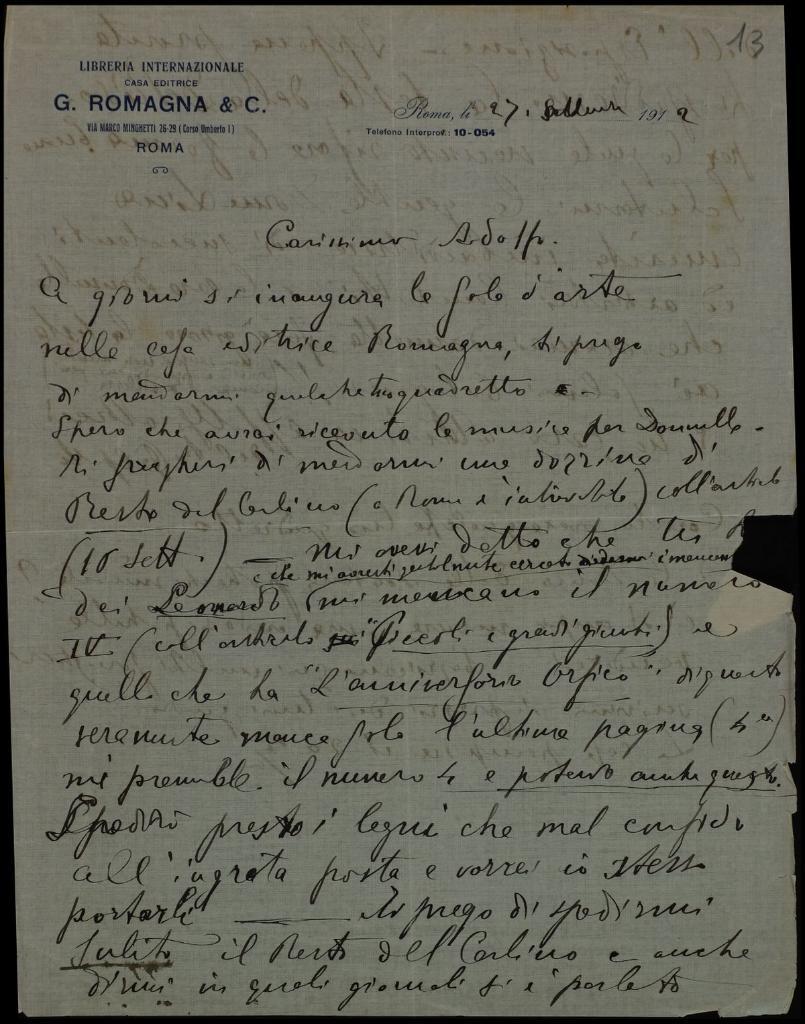 13
LIBRERIA INTERNAZIONALE
CASA EDITRICE
G. ROMAGNA & C.
VIA MARCO MINGHETTI 26-29 (Corso Umberto I)
ROMA
Roma, li 27. Settembre 1912
Telefono Interprov.: 10-054
Carissimo Adolfo.
A giorni si inaugura la sala d'arte
nella casa editrice Romagna, ti prego
di mandarmi qualche tuo quadretto
Spero che avrai ricevuto la musica per
Ti pregherei di mandarmi una dozzina di
Resto del Carlino (a Roma è introvabile) coll'articolo
(16 Sett.) — mi avevi detto che tu
e che mi avresti gentilmente cercati i mancanti
dei Leonardo (mi mancano il numero
IV (coll'articolo "Piccoli e grandi giganti) e
quello che ha "L'anniversario Orfico". di questo
veramente manca solo l'ultima pagina (4a)
mi premerebbe il numero 4 e potendo anche questo.
Spedirò presto i legni che mal confido
all'ingrata posta e vorrei io stesso
portarli — Ti prego di spedirmi
subito il Resto del Carlino e anche
dirmi in quali giornali si è parlato